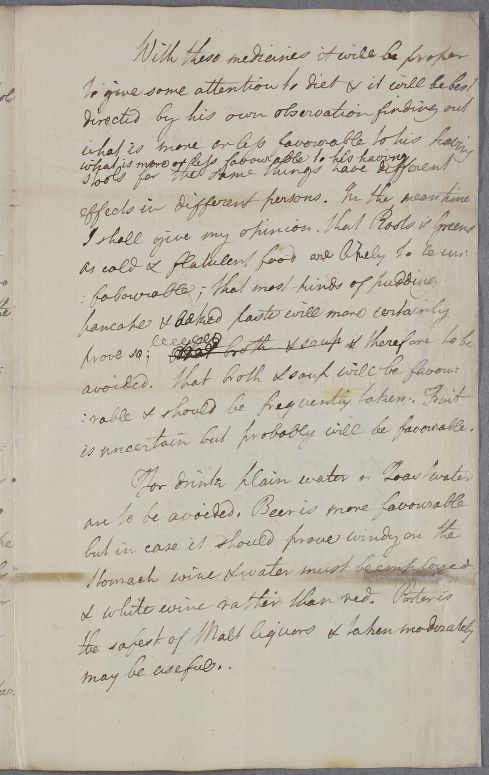 With these medicines it will be proper
to give some attention to diet & it will be best
directed by his own observation finding out
what is more or less favourable to his having
what is more or less favourable to his having
stools for the same things have different
effects in different persons. In the mean time
I shall give my opinion. that Roots & Greens
as cold & flatulent food are likely to be un:
:fabourable; that most kinds of pudding
pancake & baked paste will more certainly
prove so; broth & soup & therefore to be
avoided. that broth & soup will be favou:
:rable & should be frequently taken. Fruit
is uncertain but probably will be favourable.
For drink plain water or Toast water
are to be avoided. Beer is more favourable
but in case it should prove windy on the
stomach wine & water must be employed
& white wine rather than red. Porter is
the safest of Malt liquors & taken moderately
may be useful..